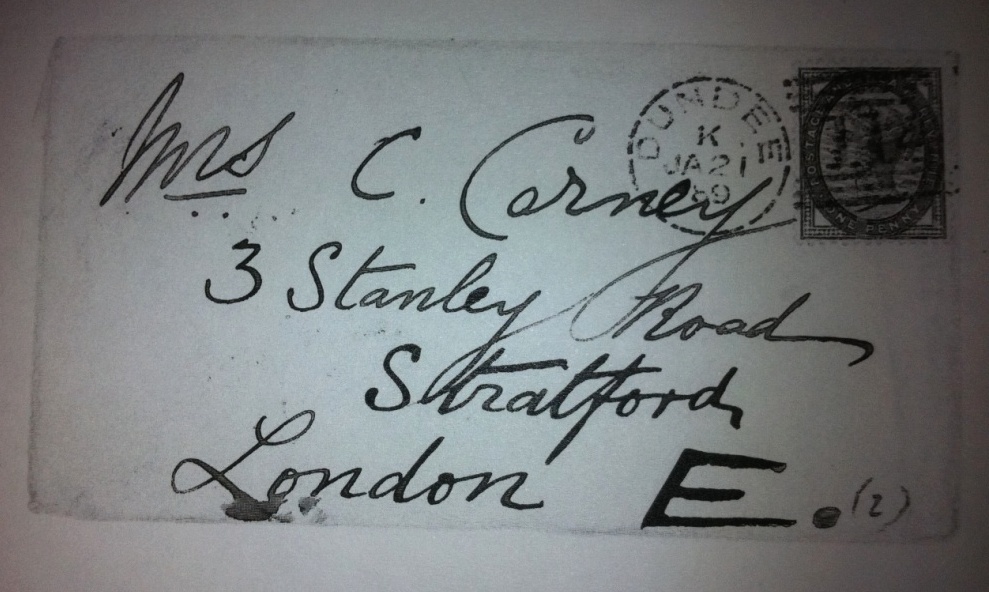 Mrs C. Carney
3 Stanley Road
Stratford
London E.
(2)
DUNDEE
K
JA 21
89
POSTAGE AND INLAND REVENUE
ONE PENNY